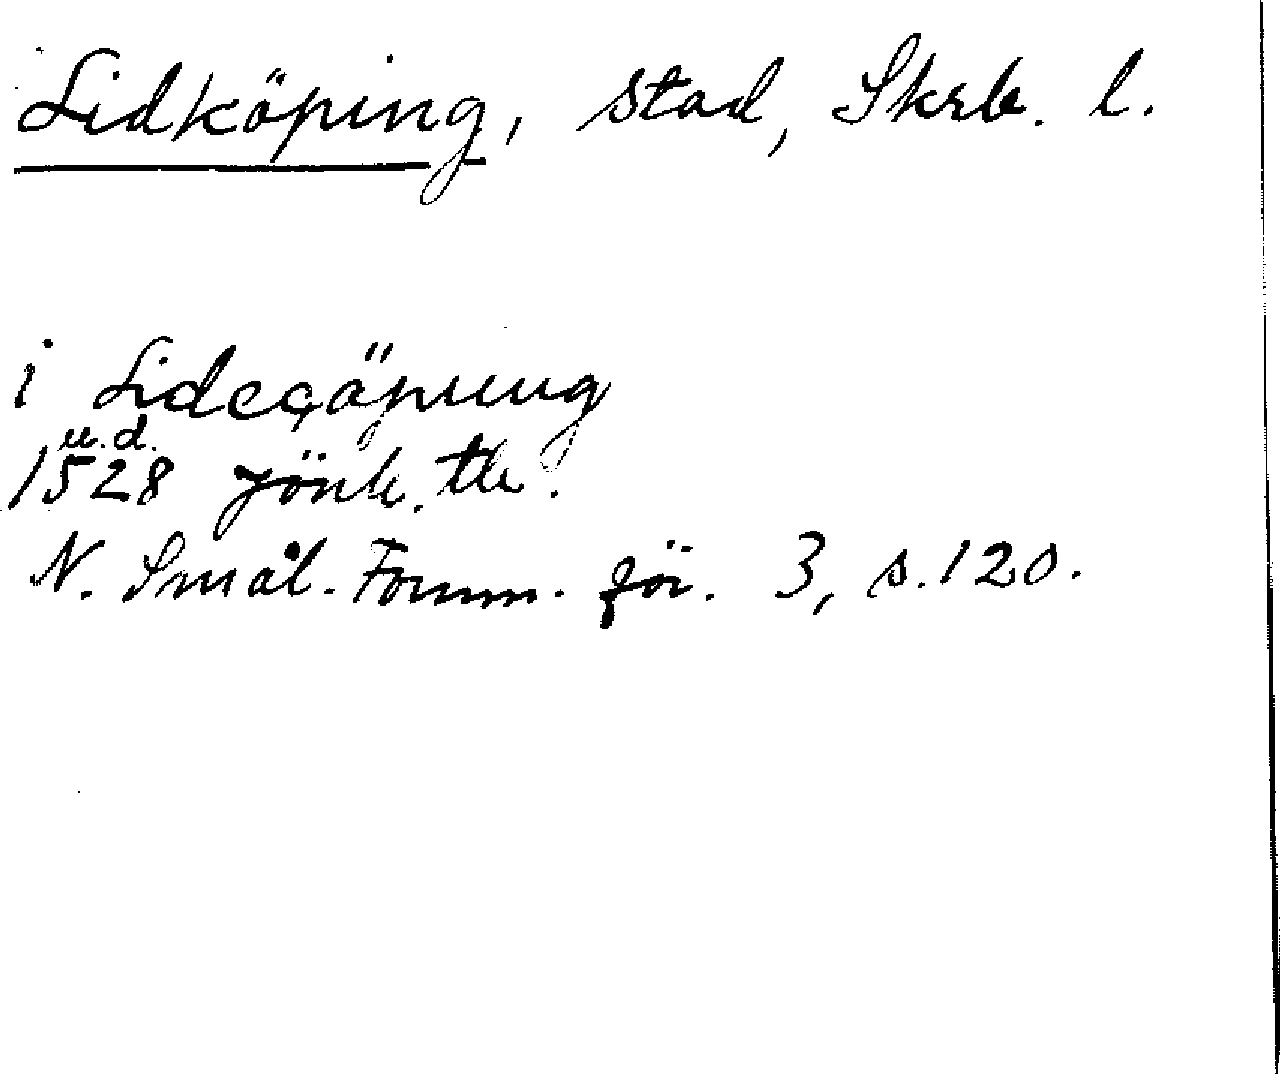 Lidköping, stad, Skrb. l.
i Lidecöpung
u.d.
1528 Jönk. tb.
N. Smål. Fornm. för. 3, s. 120.